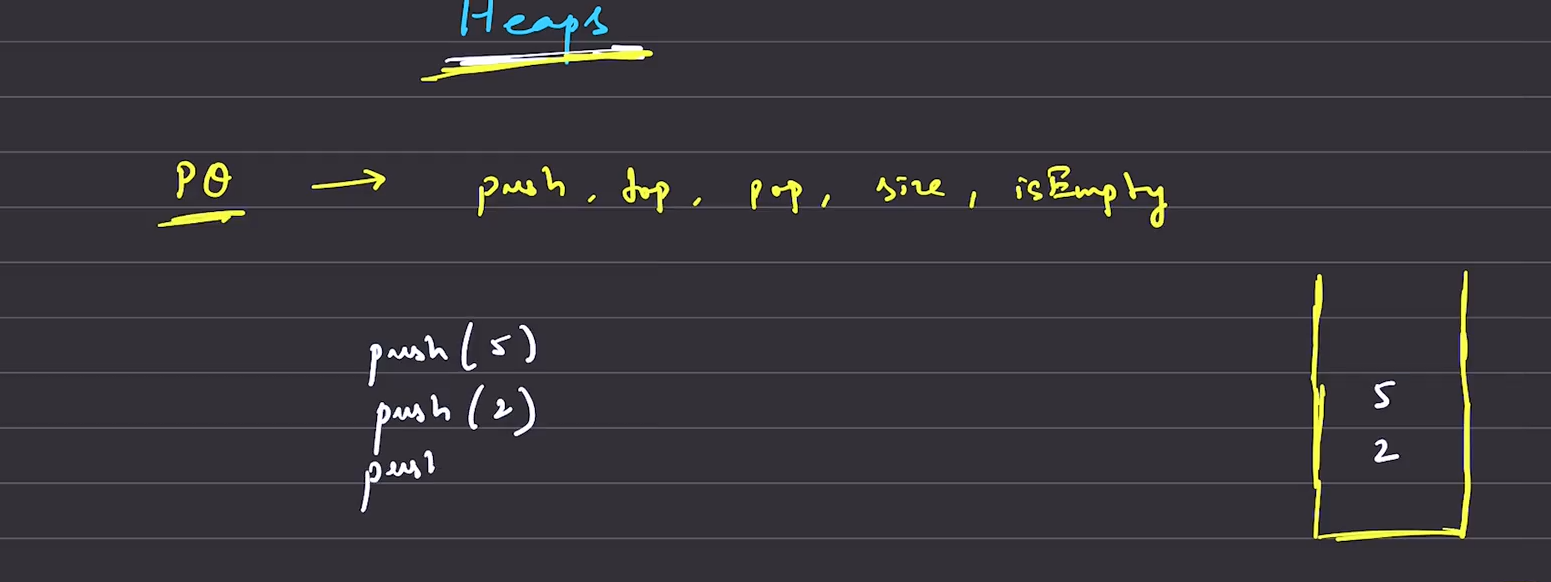 Heaps
PQ → push, top, pop, size, isEmpty
push(5)
push(2)
push
5
2